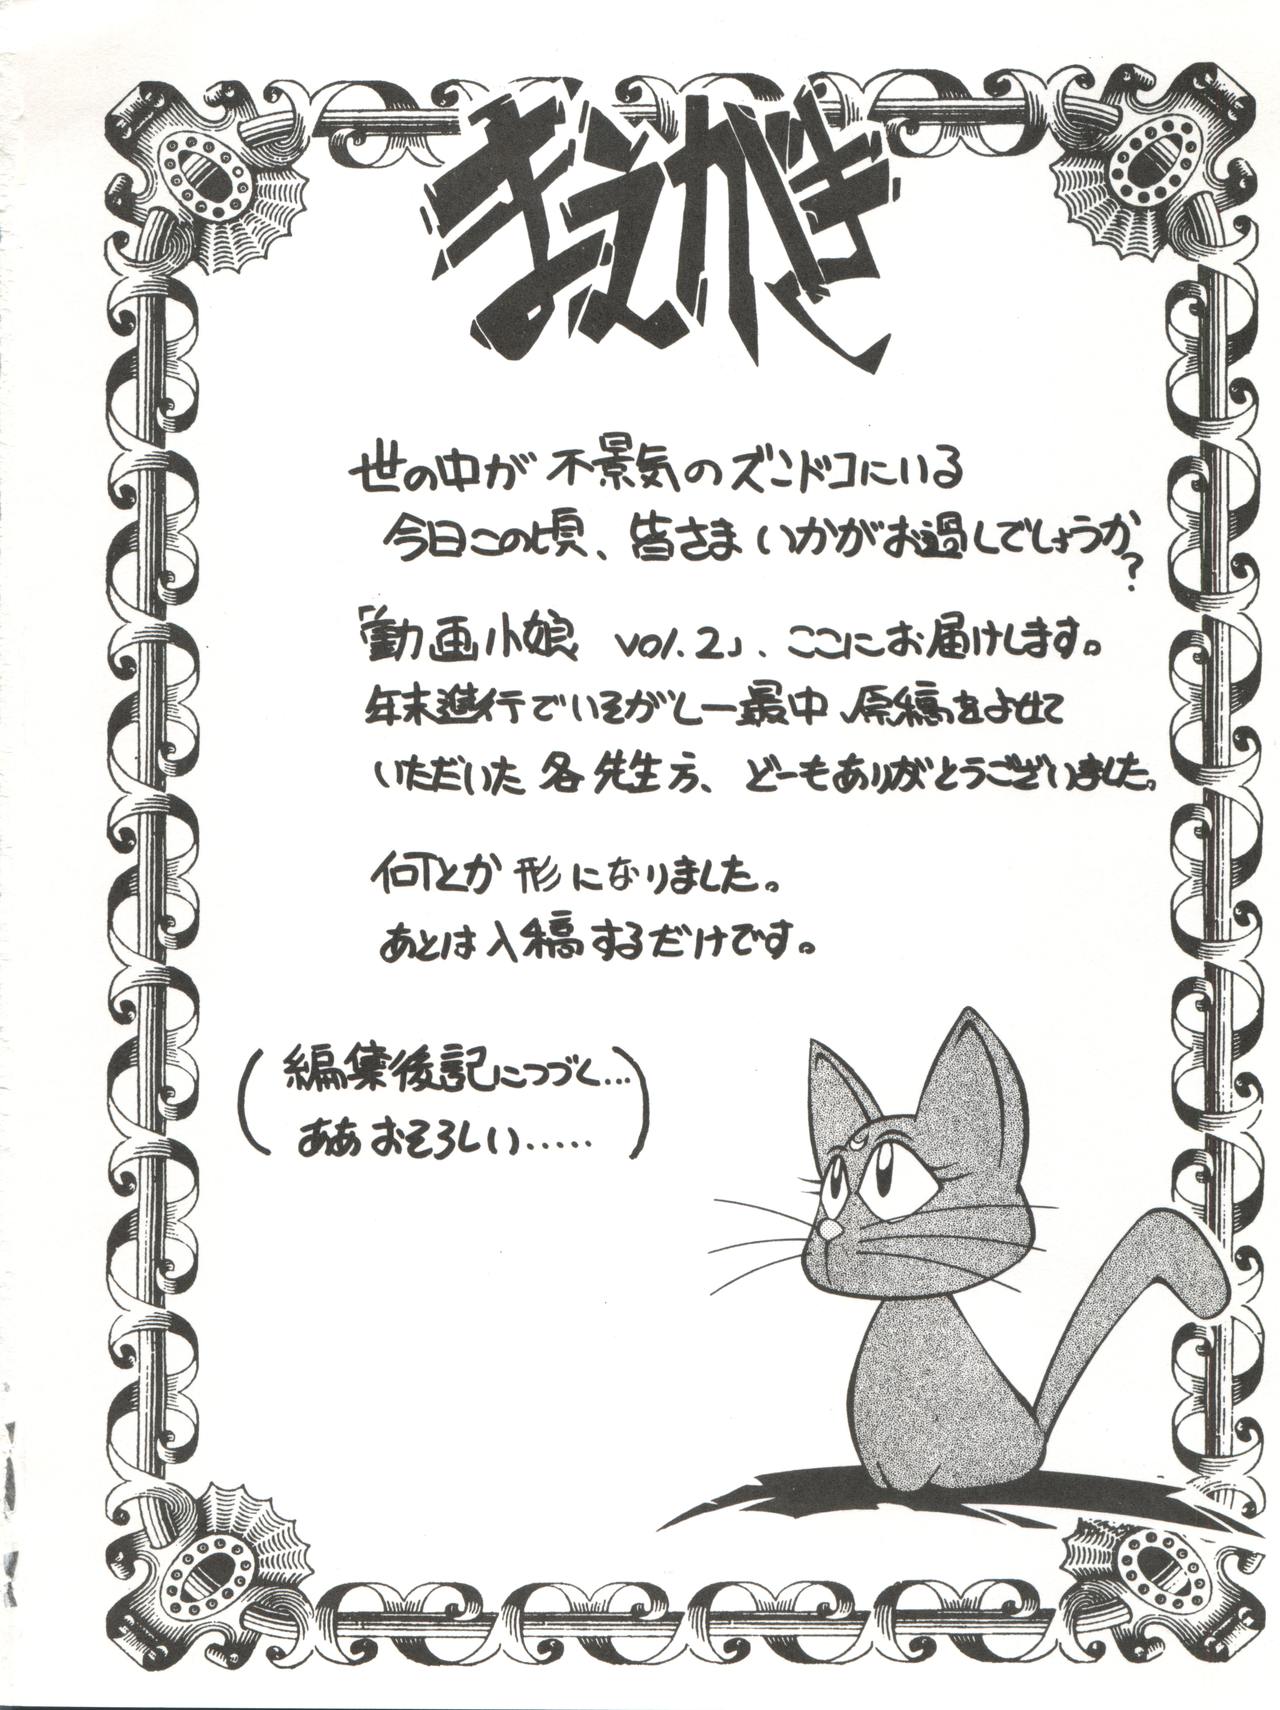 まえがき
世の中が不景気のズンドコにいる
今日この頃、皆さまいかがお過しでしょうか?
「動画小娘 vol.2」、ここにお届けします。
年末進行でいそがしー最中、原稿をよせて
いただいた各先生方、どーもありがとうございました。
何とか形になりました。
あとは入稿するだけです。
(編集後記につづく...
ああおそろしい.....)